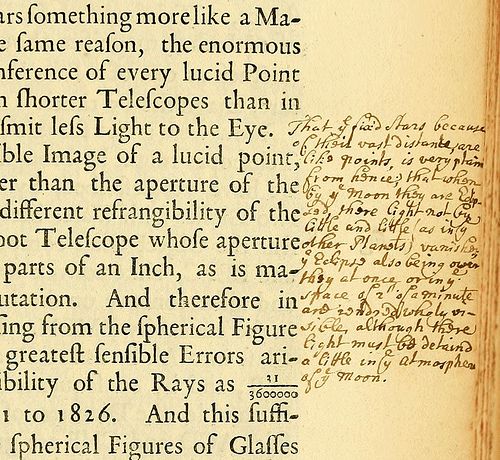 ars ſomething more like a Ma-
e ſame reaſon, the enormous
nference of every lucid Point
n ſhorter Teleſcopes than in
ſmit leſs Light to the Eye.
ible Image of a lucid point,
er than the aperture of the
different refrangibility of the
oot Teleſcope whoſe aperture
parts of an Inch, as is ma-
utation. And therefore in
ſing from the ſpherical Figure
greateſt ſenſible Errors ari-
ibility of the Rays as 31/3600000
1 to 1826. And this ſuffi-
ſpherical Figures of Glaſſes
That yͤ fix'd Stars because
of their vast distance, are
like points, is very plain
from hence; that when
by yͤ Moon they are
there light not by
little and little as in yͤ
other Planets, vanishes
yͤ Eclipse also being over
they at once or in yͤ
space of 2" of a minute
are rendred wholy vi-
sible, although there
light must be detaind
a little in yͤ Atmosphere
of yͤ Moon.